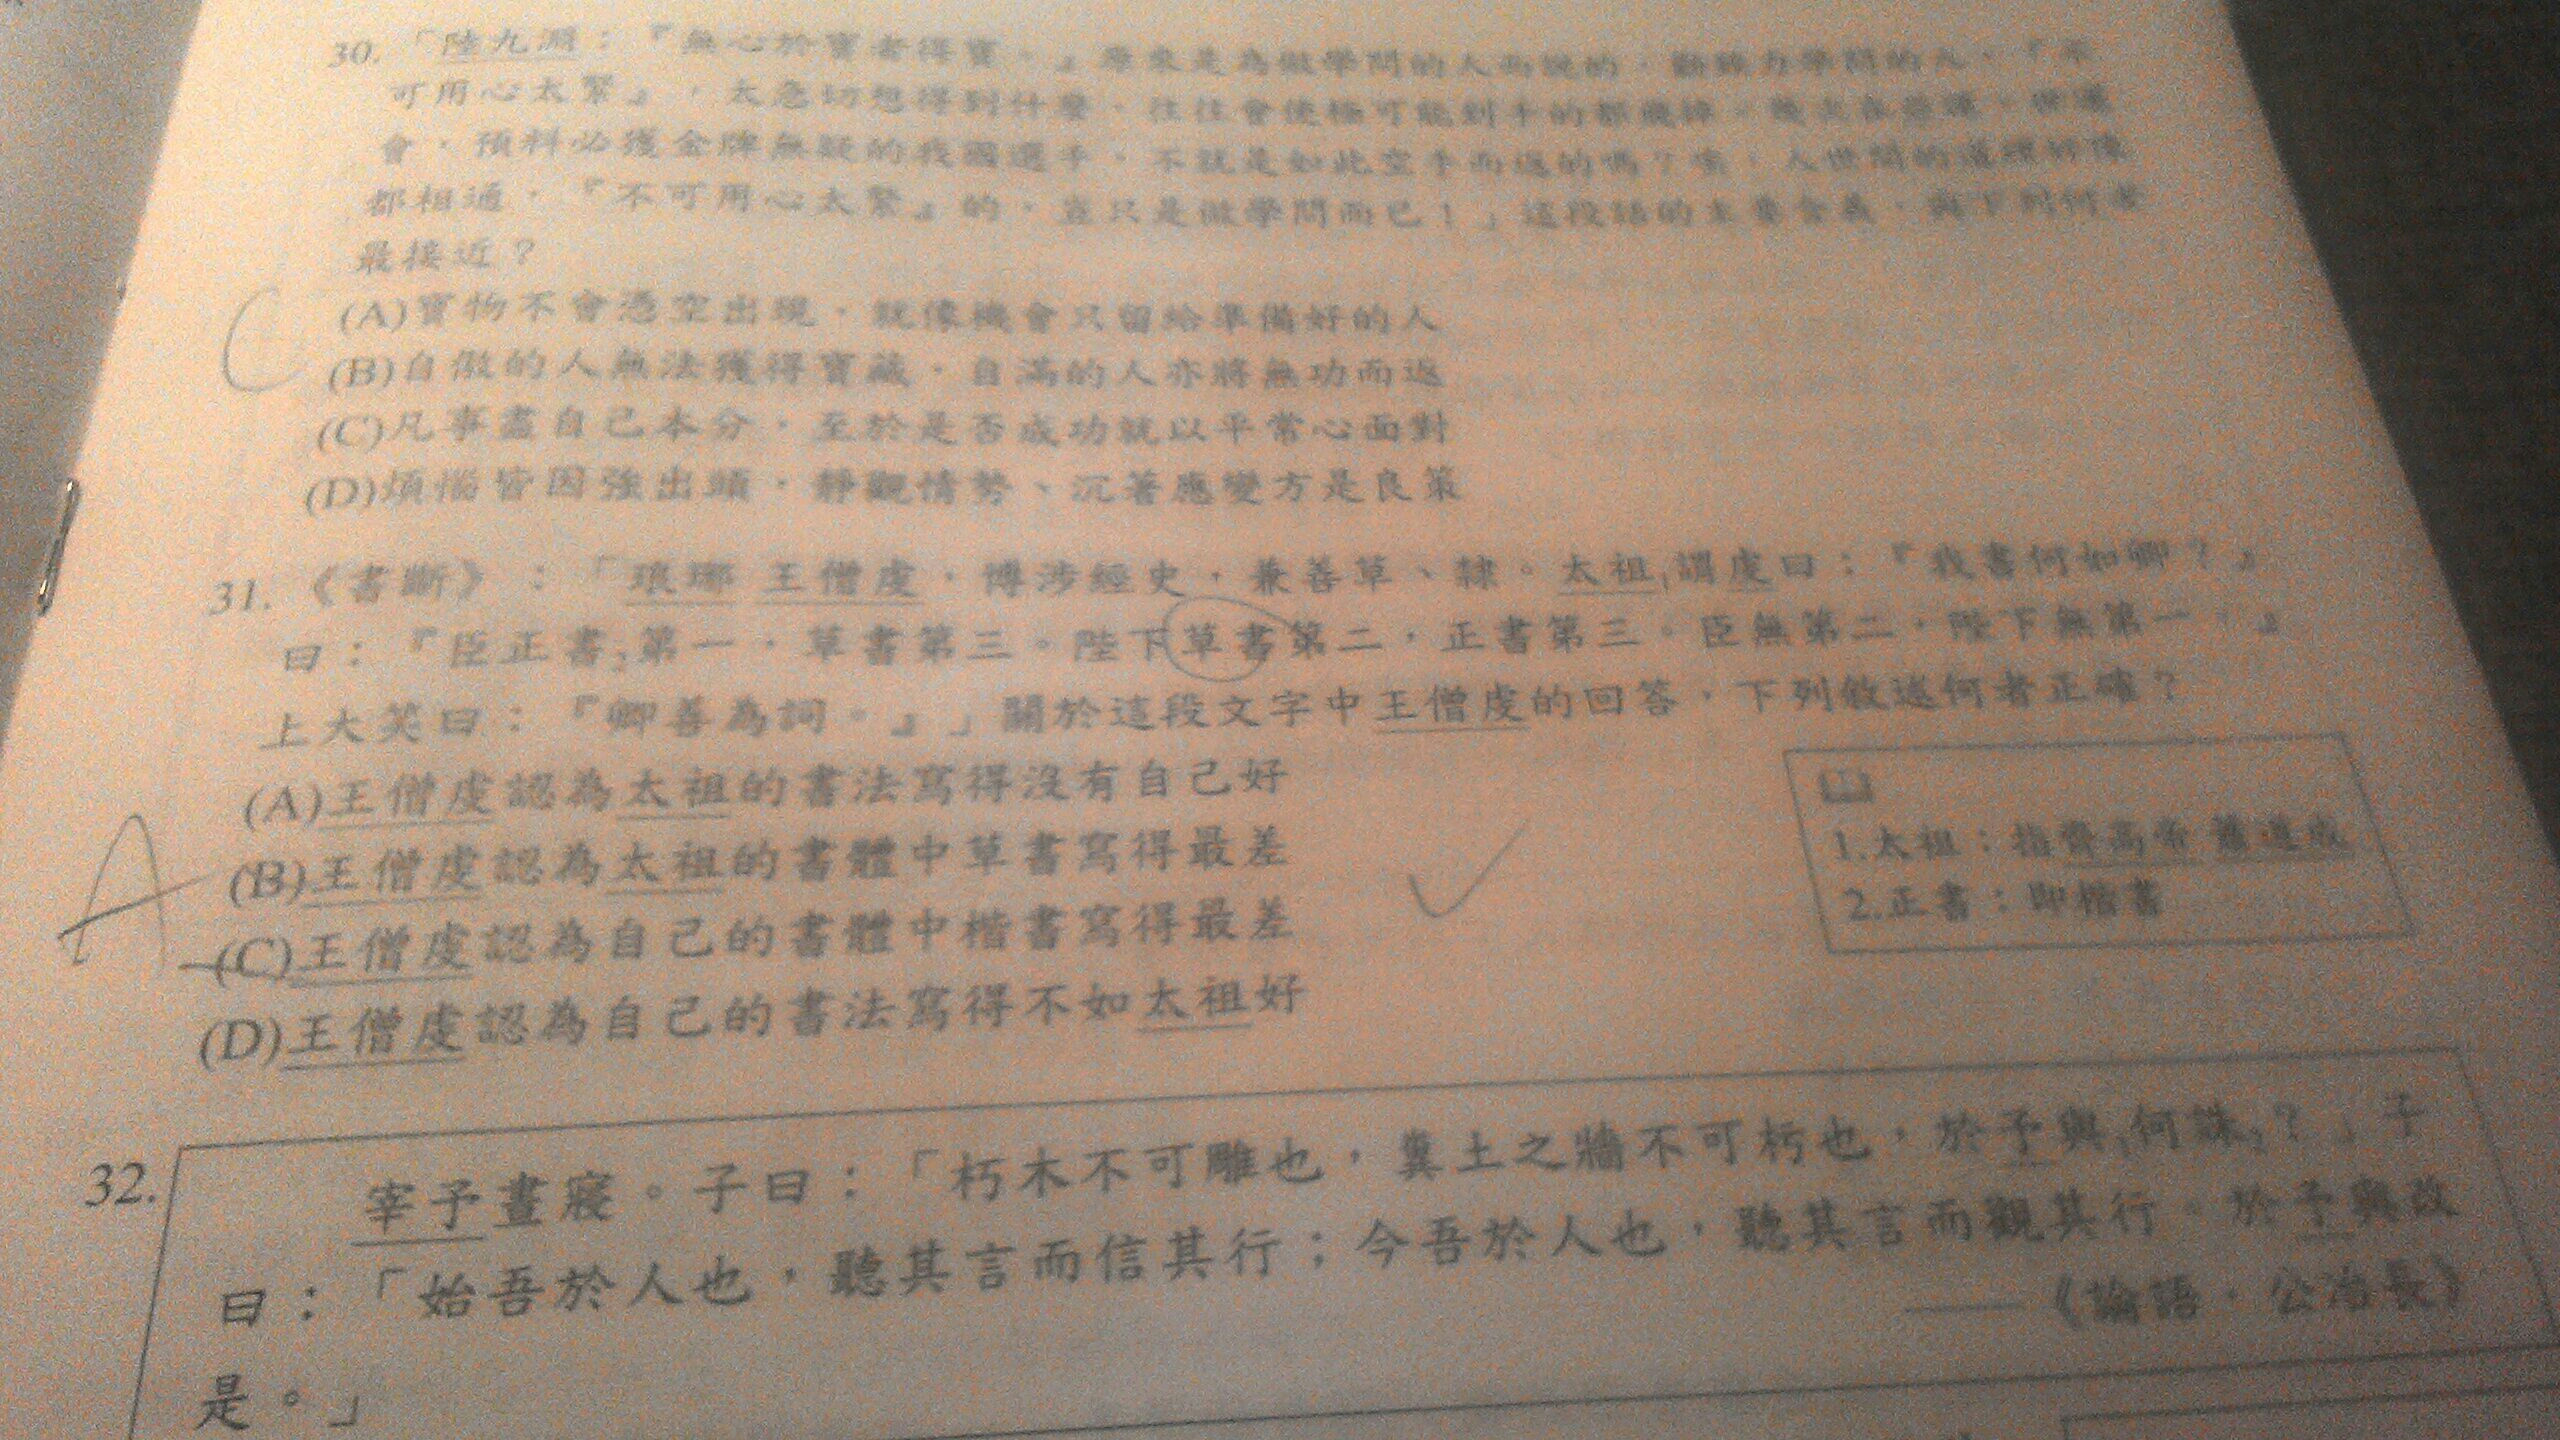 30. 「陸九淵：『無心於寶者得寶。』原來是為做學問的人而說的，勸鍛力學問的人，『不
可用心太緊』，太急切想得到什麼，往往會使極可能到手的都飛掉。幾次在亞運、世運
會，預料必獲金牌無疑的我國選手，不就是如此空手而返的嗎？唉，人世間的道理好像
都相通，『不可用心太緊』的，豈只是做學問而已！」這段話的主要含義，與下列何者
最接近？
C
(A)寶物不會憑空出現，就像機會只留給準備好的人
(B)自傲的人無法獲得寶藏，自滿的人亦將無功而返
(C)凡事盡自己本分，至於是否成功就以平常心面對
(D)煩惱皆因強出頭，靜觀情勢、沉著應變方是良策
31. 《書斷》：「琅琊 王僧虔，博涉經史，兼善草、隸。太祖1謂虔曰：『我書何如卿？』
曰：『臣正書2第一，草書第三。陛下草書第二，正書第三。臣無第二，陛下無第一。』
上大笑曰：『卿善為詞。』」關於這段文字中王僧虔的回答，下列敘述何者正確？
A
(A)王僧虔認為太祖的書法寫得沒有自己好
(B)王僧虔認為太祖的書體中草書寫得最差
(C)王僧虔認為自己的書體中楷書寫得最差
(D)王僧虔認為自己的書法寫得不如太祖好
1.太祖：指齊高帝 蕭道成
2.正書：即楷書
32.
宰予晝寢。子曰：「朽木不可雕也，糞土之牆不可杇也，於予與1何誅2？」子
曰：「始吾於人也，聽其言而信其行；今吾於人也，聽其言而觀其行。於予與改
是。」
——《論語．公冶長》